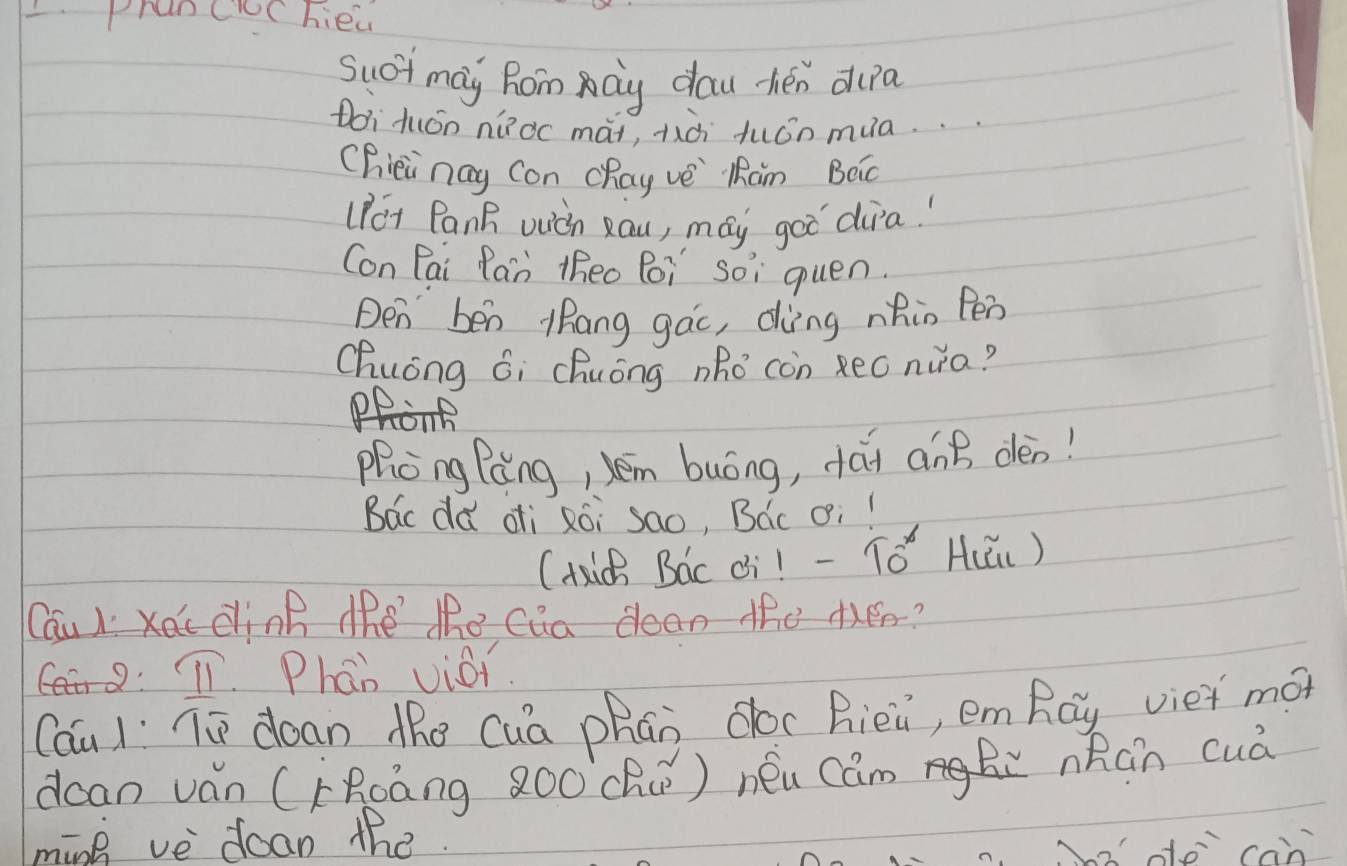 I. Phần đọc hiểu
Suốt mấy hôm rày đau tiễn đưa
Đời tuôn nước mắt, trời tuôn mưa...
Chiều nay con chạy về thăm Bác
Ướt lạnh vườn rau, mấy gốc dừa!
Con lại lần theo lối sỏi quen.
Đến bên thang gác, đứng nhìn lên
Chuông ôi chuông nhỏ còn reo nữa?
Phònh
phòng lặng, rèm buông, tắt ánh đèn!
Bác đã đi rồi sao, Bác ơi!
(trích Bác ơi! - Tố Hữu)
Câu 1: Xác định thể thơ của đoạn thơ trên?
Câu 2: II. Phần viết.
Câu 1: Từ đoạn thơ của phần đọc hiểu, em hãy viết một
đoạn văn (khoảng 200 chữ) nêu cảm nghĩ nhận của
mình về đoạn thơ.
đề cần